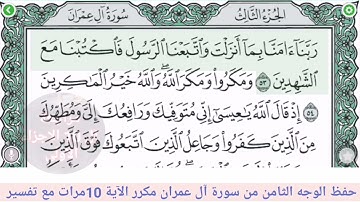 الجزء الثالث
سورة آل عمران
رَبَّنَا ءَامَنَّا بِمَا أَنزَلْتَ وَاتَّبَعْنَا الرَّسُولَ فَاكْتُبْنَا مَعَ
الشَّاهِدِينَ ٥٣ وَمَكَرُوا وَمَكَرَ اللَّهُ وَاللَّهُ خَيْرُ الْمَاكِرِينَ
٥٤ إِذْ قَالَ اللَّهُ يَاعِيسَى إِنِّي مُتَوَفِّيكَ وَرَافِعُكَ إِلَيَّ وَمُطَهِّرُكَ
مِنَ الَّذِينَ كَفَرُوا وَجَاعِلُ الَّذِينَ اتَّبَعُوكَ فَوْقَ الَّذِينَ
حفظ الوجه الثامن من سورة آل عمران مكرر الآية 10مرات مع تفسير